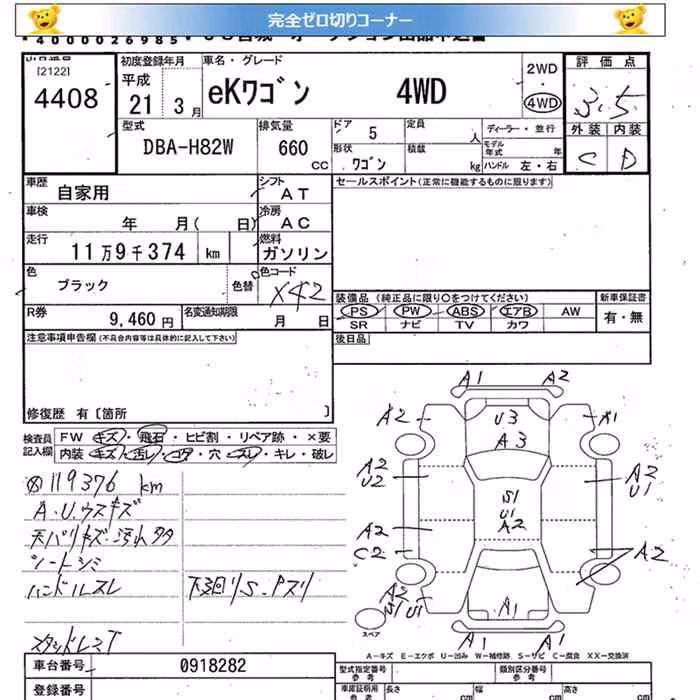 完全ゼロ切りコーナー
[2122]
4408
初度登録年月
平成
21 3 月
車名・グレード
eKワゴン 4WD
2WD
4WD
評 価 点
3.5
外装 内装
C D
型式
DBA-H82W
排気量
660
CC
ドア
5
定員
人
形状
ワゴン
積載
kg
ディーラー・並行
モデル年式 年
ハンドル 左・右
車歴
自家用
シフト
AT
車検
年 月( 日)
冷房
AC
走行
11万9千374 km
燃料
ガソリン
色
ブラック
色替
色コード
X42
R券
9,460 円
名変通知期限
月 日
セールスポイント(正常に機能するものに限ります)
装備品 (純正品に限り○をつけてください)
PS PW ABS エアB AW
SR ナビ TV カワ
新車保証書
有・無
後日品
注意事項申告欄(不具合内容等は具体的に記入して下さい)
修復歴 有〔箇所 〕
検査員
記入欄
FW キズ・飛石・ヒビ割・リペア跡・×要
内装 キズ・汚レ・コゲ・穴・スレ・キレ・破レ
119376 km
A.Uウスキズ
シートシミ
ハンドルスレ
下回りS.Pスリ
A1 A2
A2 U3 A1
A3
A2
U2
A2
U1
S1
U1
A2
A2
C2
A2
A2
S1 U1
A1
A1 A1
スペア
A－キズ E－エクボ U－凹み W－補修跡 S－サビ C－腐食 XX－交換済
車台番号
0918282
登録番号
型式指定番号
参考
類別区分番号
参考
車庫証明用
参考
長さ cm
幅 cm
高さ cm